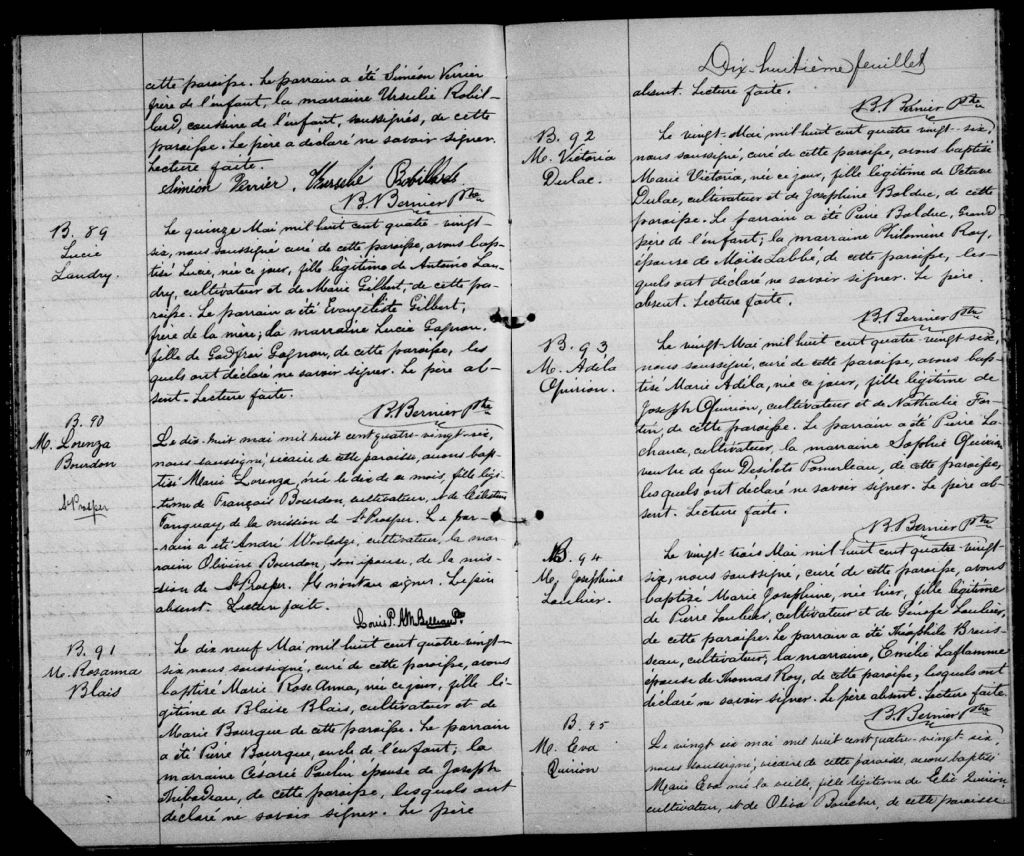 cette paroisse. Le parrain a été Siméon Verrier
frère de l'enfant, la marraine Ursulie Robil-
lard, cousine de l'enfant, soussignés, de cette
paroisse. Le père a déclaré ne savoir signer.
Lecture faite.
Siméon Verrier. Robillard
B. Bernier Ptre
B. 89
Lucie
Landry.
Le quinze Mai mil huit cent quatre-vingt-
six, nous soussigné curé de cette paroisse, avons bap-
tisé Lucie, née ce jour, fille légitime de Antoine Lan-
dry, cultivateur et de Marie Gilbert, de cette pa-
roisse. Le parrain a été Evangéliste Gilbert,
frère de la mère; la marraine Lucie Gagnon,
fille de Godfroi Gagnon, de cette paroisse, les
quels ont déclaré ne savoir signer. Le père ab-
sent. Lecture faite.
B. Bernier Ptre
B. 90
M. Lorenza
Bourdon
St Prosper
Le dix-huit mai mil huit cent quatre-vingt-six,
nous soussigné, vicaire de cette paroisse, avons bap-
tisé Marie Lorenza, née le dix de ce mois, fille légi-
time de François Bourdon, cultivateur, et de Célestine
Tanguay, de la mission de St Prosper. Le par-
rain a été André cultivateur, la mar-
raine Olivine Bourdon, son épouse, de la mis-
sion de St Prosper. signer. Le père
absent. Lecture faite.
Louis P. Ptre
B. 91
M. Rosanna
Blais
Le dix neuf Mai mil huit cent quatre-vingt-
six nous soussigné, curé de cette paroisse, avons
baptisé Marie Rose Anna, née ce jour, fille lé-
gitime de Blaise Blais, cultivateur et de
Marie Bourque de cette paroisse. Le parrain
a été Pierre Bourque, oncle de l'enfant; la
marraine Césarie Poulin épouse de Joseph
Thibodeau, de cette paroisse, lesquels ont
déclaré ne savoir signer. Le père
Dix-huitième feuillet
absent. Lecture faite.
B. Bernier Ptre
B. 92
M. Victoria
Dulac.
Le vingt Mai mil huit cent quatre vingt-six,
nous soussigné, curé de cette paroisse, avons baptisé
Marie Victoria, née ce jour, fille légitime de Octave
Dulac, cultivateur et de Joséphine Bolduc, de cette
paroisse. Le parrain a été Pierre Bolduc, Grand
père de l'enfant; la marraine Philomène Roy,
épouse de Moïse Labbé, de cette paroisse, les-
quels ont déclaré ne savoir signer. Le père
absent. Lecture faite.
B. Bernier Ptre
B. 93
M. Adéla
Quirion.
Le vingt Mai mil huit cent quatre-vingt six,
nous soussigné, curé de cette paroisse, avons bap-
tisé Marie Adéla, née ce jour, fille légitime de
Joseph Quirion, cultivateur et de Nathalie For-
tin, de cette paroisse. Le parrain a été Pierre La-
chance, cultivateur, la marraine Sophie Quirion
veuve de feu Desilets Pomerleau, de cette paroisse,
lesquels ont déclaré ne savoir signer. Le père ab-
sent. Lecture faite.
B. Bernier Ptre
B. 94
M. Joséphine
Loubier.
Le vingt-trois Mai mil huit cent quatre-vingt
six, nous soussigné, curé de cette paroisse, avons
baptisé Marie Joséphine, née hier, fille légitime
de Pierre Loubier, cultivateur et de Loubier,
de cette paroisse. Le parrain a été Théophile Brous-
seau, cultivateur; la marraine, Emélie Laflamme
épouse de Thomas Roy, de cette paroisse, lesquels ont
déclaré ne savoir signer. Le père absent. Lecture faite.
B. Bernier Ptre
B. 95
M. Eva
Quirion
Le vingt six mai mil huit cent quatre-vingt six,
nous soussigné, vicaire de cette paroisse, avons baptisé
Marie Eva née la veille, fille légitime de Elie Quirion
cultivateur, et de Oliva Boucher, de cette paroisse